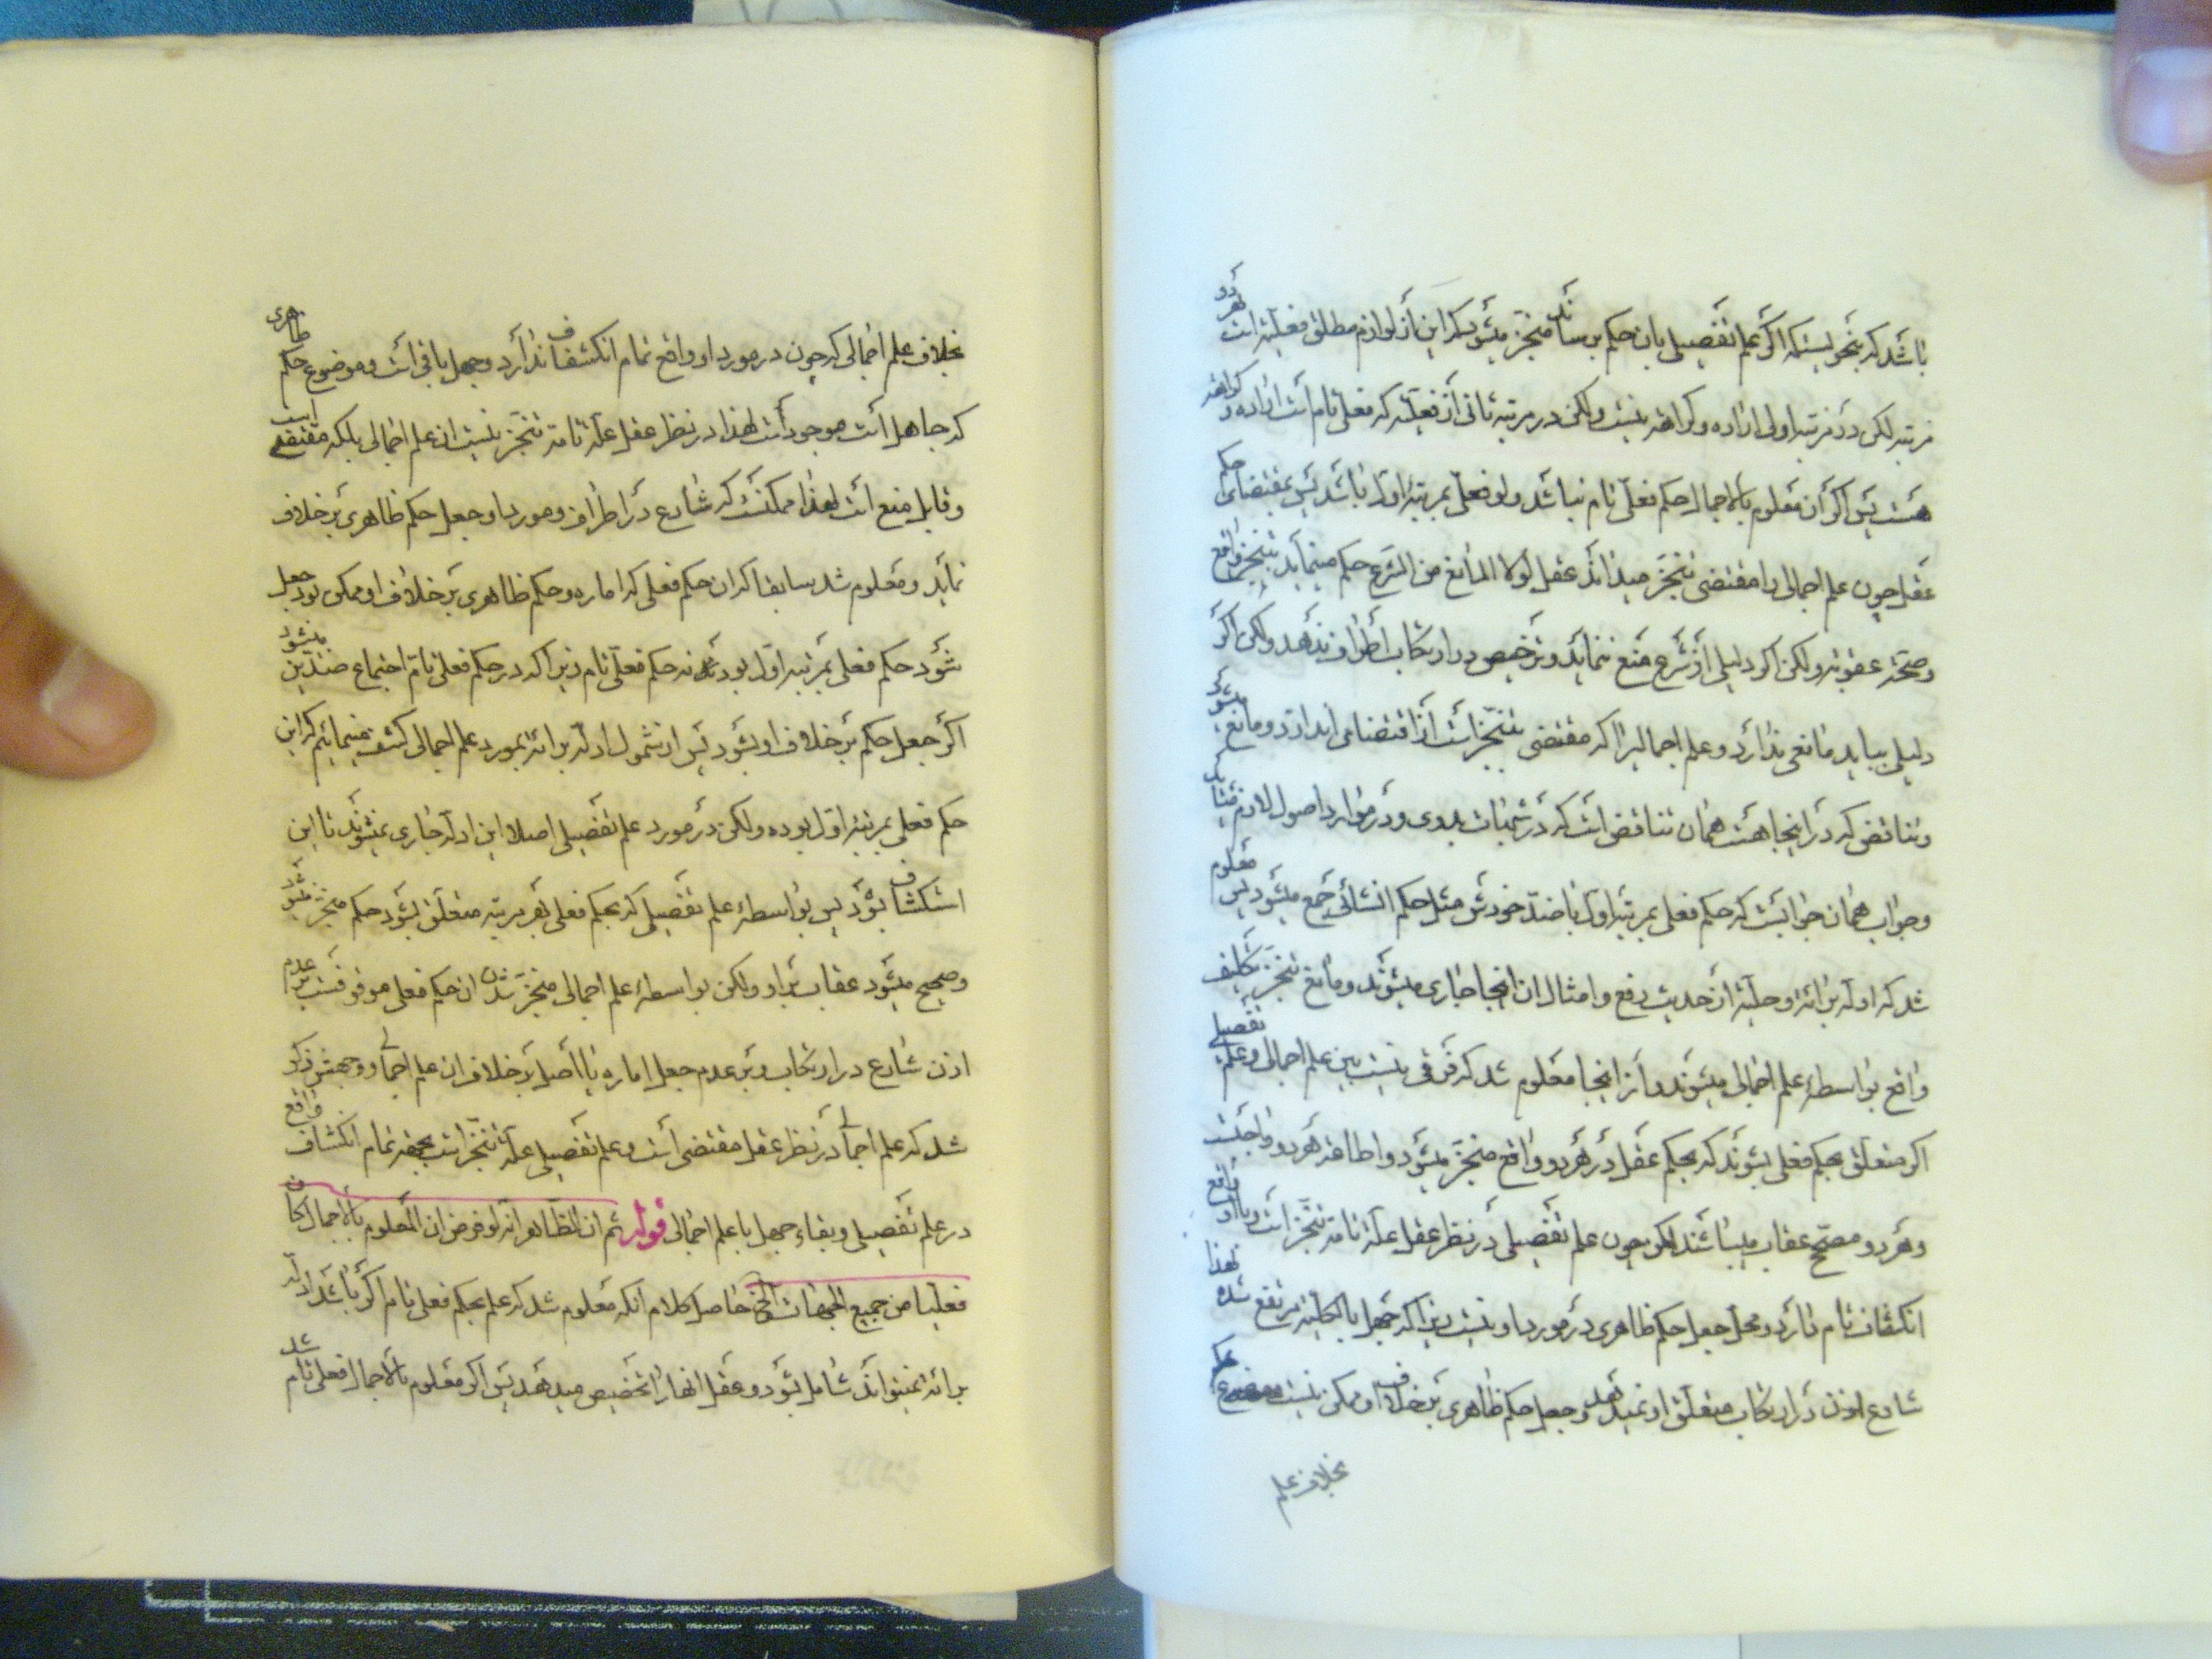 باشد که بنحویستکه اگر علم تفصیلی بان حکم برساند منجّز میشود بلکه این از لوازم مطلق فعلیّة است بهر دو
مرتبه لکن در مرتبه اولی اراده و کراهة نیست ولکن در مرتبه ثانی از فعلیّة که فعلی تام است اراده و کراهة
هست پس اگر ان معلوم بالاجمال حکم فعلی تام نباشد ولو فعلی بمرتبۀ اول باشد پس بمقتضای حکم
عقل چون علم اجمالی را مقتضی تنجّز میداند عقل لولا المانع من الشرع حکم مینماید بتنجیز واقع
و صحّة عقوبة ولکن اگر دلیل از شرع منع ننماید و ترخیص در ارتکاب اطراف ندهد ولکن اگر
دلیل بیاید مانعی ندارد و علم اجمالیرا که مقتضی تنجّز است از اقتضا می اندازد و مانع میشود
و تناقض که در اینجا هست همان تناقض است که در شبهات بدوی و در موارد اصول لازم میاید
و جواب همان جوابست که حکم فعلی بمرتبۀ اول با ضدّ خودش مثل حکم انشائی جمع میشود پس معلوم
شد که ادلّه برائة و حلیّة از حدیث رفع و امثال ان اینجا جاری میشوند و مانع تنجّز تکلیف
واقع بواسطۀ علم اجمالی میشوند و از اینجا معلوم شد که فرقی نیست بین علم اجمالی و علم تفصیلی
اگر متعلّق بحکم فعلی بشوند که بحکم عقل در هر دو واقع منجّز میشود و اطاعة هر دو واجبست
و هر دو مصحّح عقاب میباشند لکن چون علم تفصیلی در نظر عقل علّة تامة تنجّز است و با او واقع
انکشاف تام دارد و محل جعل حکم ظاهری در مورد او نیست زیرا که جهل بالکلیّة مرتفع شده لهذا
شارع اذن در ارتکاب متعلّق او نمیدهد و جعل حکم ظاهری بر خلاف او ممکن نیست
بخلاف علم
بخلاف علم اجمالی که چون در مورد او واقع تمام انکشاف ندارد و جهل باقی است و موضوع حکم ظاهری
که جاهل است موجود است لهذا در نظر عقل علّة تامة تنجّز نیست ان علم اجمالی بلکه مقتضی است
و قابل منع است لهذا ممکنست که شارع در اطراف و مورد او جعل حکم ظاهری بر خلاف
نماید و معلوم شد سابقا که ان حکم فعلی که اماره و حکم ظاهری بر خلاف او ممکن بود جعل
شود حکم فعلی بمرتبه اول بود نه حکم فعلی تام زیرا که در حکم فعلی تام اجتماع ضدّین میشود
اگر جعل حکم بر خلاف او بشود پس از شمول ادلّه برائة بمورد علم اجمالی کشف مینمائیم که این
حکم فعلی بمرتبۀ اول بوده ولکن در مورد علم تفصیلی اصلا این ادلّه جاری نمیشوند تا این
استکشاف بشود پس بواسطۀ علم تفصیلی که بحکم فعلی بهر مرتبه متعلّق بشود حکم منجّز میشود
و صحیح میشود عقاب بر او ولکن بواسطۀ علم اجمالی منجّز شدن ان حکم فعلی موقوفست بر عدم
اذن شارع در ارتکاب و بر عدم جعل اماره یا اصل بر خلاف ان علم اجمالی و وجهش ذکر
شد که علم اجمالی در نظر عقل مقتضی است و علم تفصیلی علّة تنجّز است بجهة تمام انکشاف واقع
در علم تفصیلی و بقاء جهل با علم اجمالی قوله ثم ان الظاهر انه لو فرض ان المعلوم بالاجمال کان
فعلیا من جمیع الجهات الخ حاصل کلام انکه معلوم شد که علم بحکم فعلی تام اگر باشد ادلّه
برائة نمیتواند شامل بشود و عقل انها را تخصیص میدهد پس اگر معلوم بالاجمال فعلی تام شد